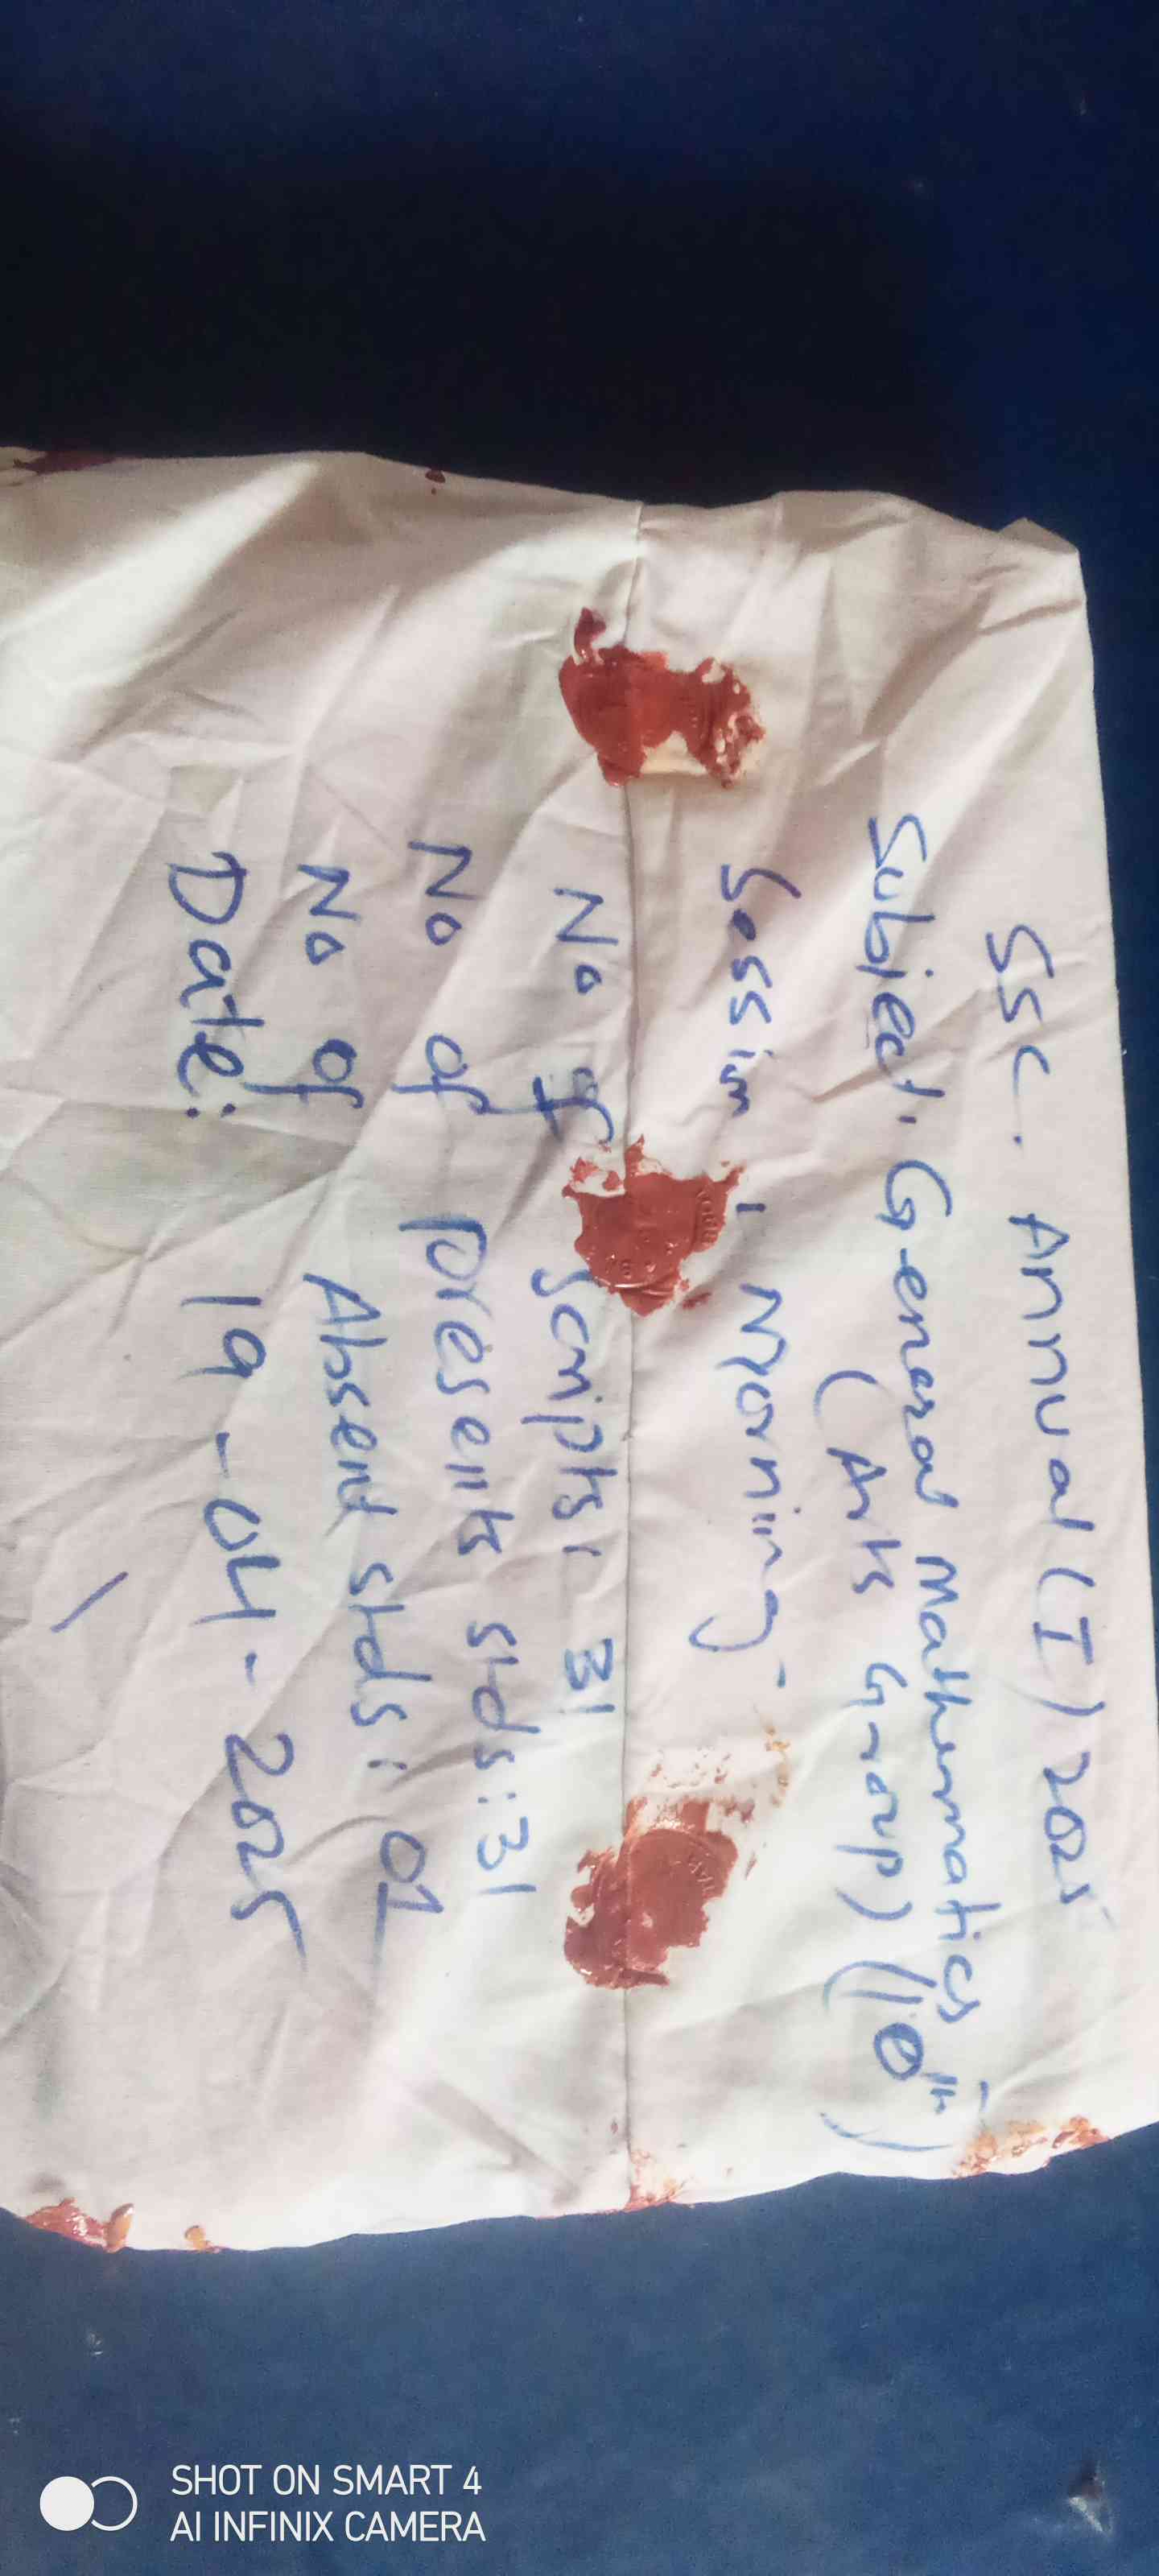 SSC. Annual (I) 2025
Subject: General Mathematics
(Arts Group) (10th)
Session: Morning
No of Scripts: 31
No of presents stds: 31
No of Absent stds: 01
Date: 19-04-2025
SHOT ON SMART 4
AI INFINIX CAMERA